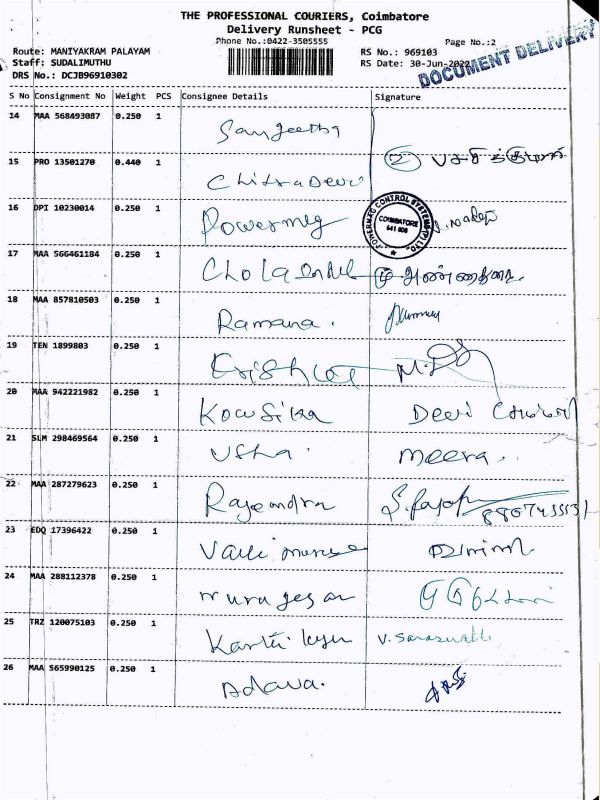 THE PROFESSIONAL COURIERS, Coimbatore
Delivery Runsheet - PCG
Phone No.:0422-3505555
Page No.:2
Route: MANIYAKRAM PALAYAM
RS No.: 969103
Staff: SUDALIMUTHU
RS Date: 30-Jun-2022
DOCUMENT DELIVERY
DRS No.: DCJB96910302
S No Consignment No Weight PCS Consignee Details Signature
14 MAA 568493087 0.250 1 Sangeetha
15 PRO 13501270 0.440 1 Chitra Devi
16 DPI 10230014 0.250 1 Powermeg
POWERMAG CONTROL SYSTEMS (P) LTD
COIMBATORE
641 006
17 MAA 566461184 0.250 1
18 MAA 857810503 0.250 1 Ramana.
19 TEN 1899803 0.250 1
20 MAA 942221982 0.250 1 Kousika Devi
21 SLM 298469564 0.250 1 Usha. Meera.
22 MAA 287279623 0.250 1 Rajendra
23 EDQ 17396422 0.250 1
24 MAA 288112378 0.250 1 Murugesan
25 TRZ 120075103 0.250 1 V. Saraswathi
26 MAA 565990125 0.250 1